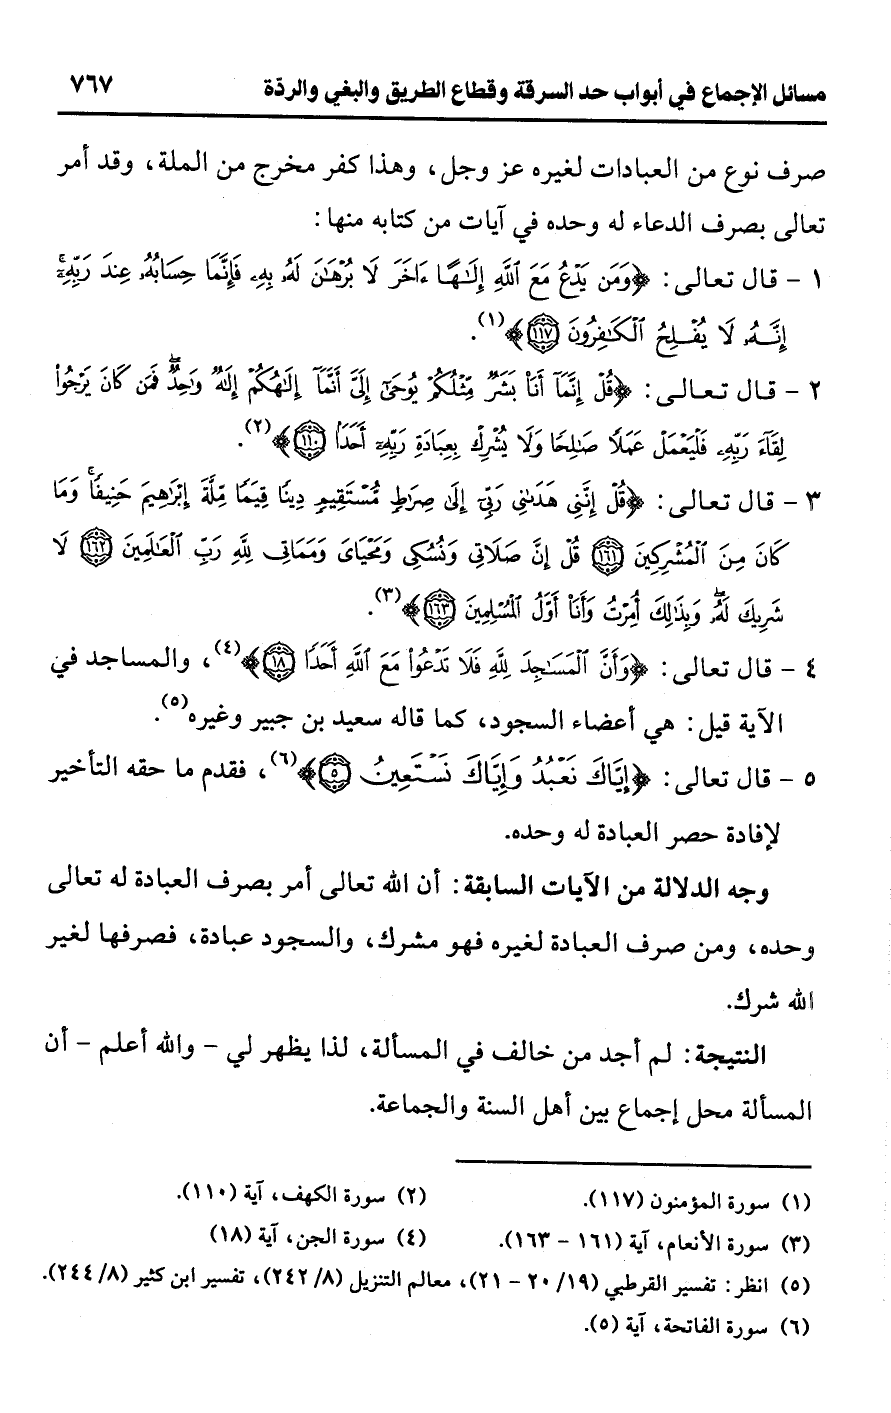 مسائل الإجماع في أبواب حد السرقة وقطاع الطريق والبغي والردّة ٧٦٧
صرف نوع من العبادات لغيره عز وجل، وهذا كفر مخرج من الملة، وقد أمر
تعالى بصرف الدعاء له وحده في آيات من كتابه منها:
١ - قال تعالى: ﴿وَمَن يَدْعُ مَعَ ٱللَّهِ إِلَٰهًا ءَاخَرَ لَا بُرْهَٰنَ لَهُۥ بِهِۦ فَإِنَّمَا حِسَابُهُۥ عِندَ رَبِّهِۦٓۚ
إِنَّهُۥ لَا يُفْلِحُ ٱلْكَٰفِرُونَ ١١٧﴾(١).
٢ - قال تعالى: ﴿قُلْ إِنَّمَآ أَنَا۠ بَشَرٌ مِّثْلُكُمْ يُوحَىٰٓ إِلَىَّ أَنَّمَآ إِلَٰهُكُمْ إِلَٰهٌ وَٰحِدٌۖ فَمَن كَانَ يَرْجُوا۟
لِقَآءَ رَبِّهِۦ فَلْيَعْمَلْ عَمَلًا صَٰلِحًا وَلَا يُشْرِكْ بِعِبَادَةِ رَبِّهِۦٓ أَحَدًۢا ١١٠﴾(٢).
٣ - قال تعالى: ﴿قُلْ إِنَّنِى هَدَىٰنِى رَبِّىٓ إِلَىٰ صِرَٰطٍ مُّسْتَقِيمٍ دِينًا قِيَمًا مِّلَّةَ إِبْرَٰهِيمَ حَنِيفًاۚ وَمَا
كَانَ مِنَ ٱلْمُشْرِكِينَ ١٦١ قُلْ إِنَّ صَلَاتِى وَنُسُكِى وَمَحْيَاىَ وَمَمَاتِى لِلَّهِ رَبِّ ٱلْعَٰلَمِينَ ١٦٢ لَا
شَرِيكَ لَهُۥۖ وَبِذَٰلِكَ أُمِرْتُ وَأَنَا۠ أَوَّلُ ٱلْمُسْلِمِينَ ١٦٣﴾(٣).
٤ - قال تعالى: ﴿وَأَنَّ ٱلْمَسَٰجِدَ لِلَّهِ فَلَا تَدْعُوا۟ مَعَ ٱللَّهِ أَحَدًا ١٨﴾(٤)، والمساجد في
الآية قيل: هي أعضاء السجود، كما قاله سعيد بن جبير وغيره(٥).
٥ - قال تعالى: ﴿إِيَّاكَ نَعْبُدُ وَإِيَّاكَ نَسْتَعِينُ ٥﴾(٦)، فقدم ما حقه التأخير
لإفادة حصر العبادة له وحده.
وجه الدلالة من الآيات السابقة: أن الله تعالى أمر بصرف العبادة له تعالى
وحده، ومن صرف العبادة لغيره فهو مشرك، والسجود عبادة، فصرفها لغير
الله شرك.
النتيجة: لم أجد من خالف في المسألة، لذا يظهر لي - والله أعلم - أن
المسألة محل إجماع بين أهل السنة والجماعة.
(١) سورة المؤمنون (١١٧). (٢) سورة الكهف، آية (١١٠).
(٣) سورة الأنعام، آية (١٦١ - ١٦٣). (٤) سورة الجن، آية (١٨)
(٥) انظر: تفسير القرطبي (١٩/ ٢٠ - ٢١)، معالم التنزيل (٨/ ٢٤٢)، تفسير ابن كثير (٨/ ٢٤٤).
(٦) سورة الفاتحة، آية (٥).